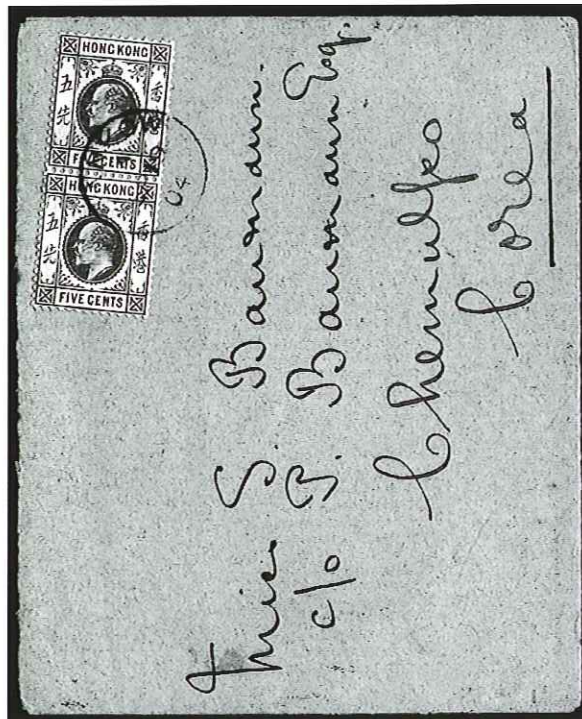 HONG KONG
五先
香港
FIVE CENTS
HONG KONG
五先
香港
FIVE CENTS
04
Miss S. Baumann.
c/o P. Baumann Esq.
Chemulpo
Corea